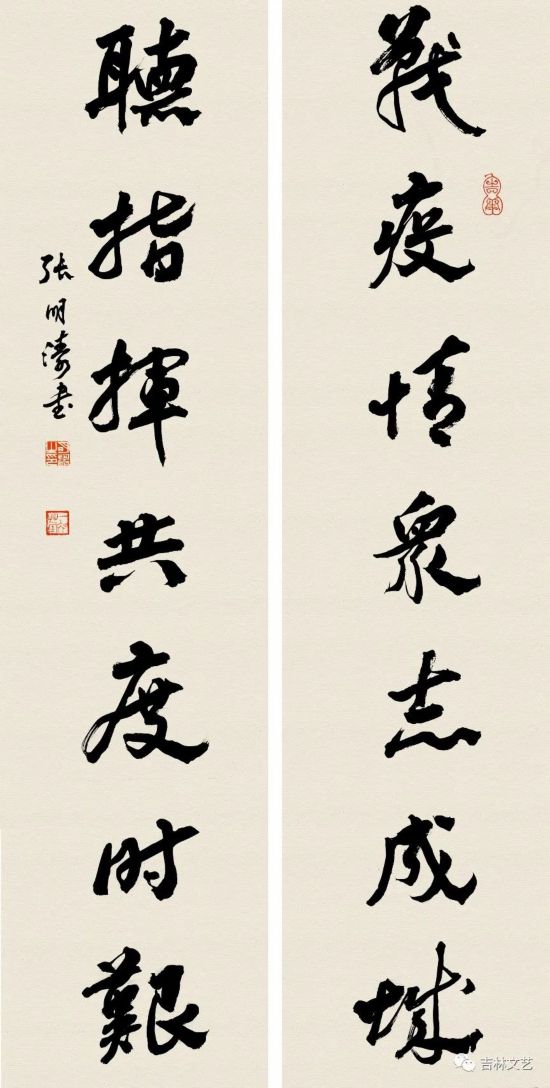 戰疫情衆志成城
聽指揮共度时艱
张明涛書
吉林文艺